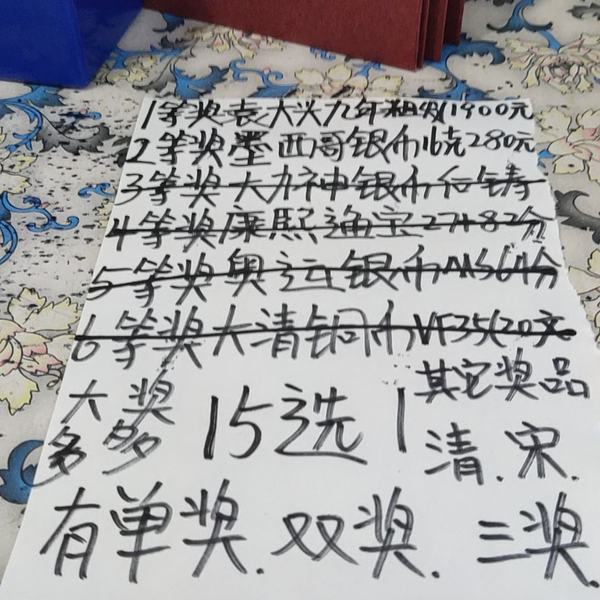 1等奖袁大头九年粗发1900元
2等奖墨西哥银币16克280元
3等奖大力神银币后铸
4等奖康熙通宝27+82分
5等奖奥运银币MS64分
6等奖大清铜币VF35(20文
其它奖品
大奖 15选1
多多 清.宋.
有单奖.双奖.三奖.